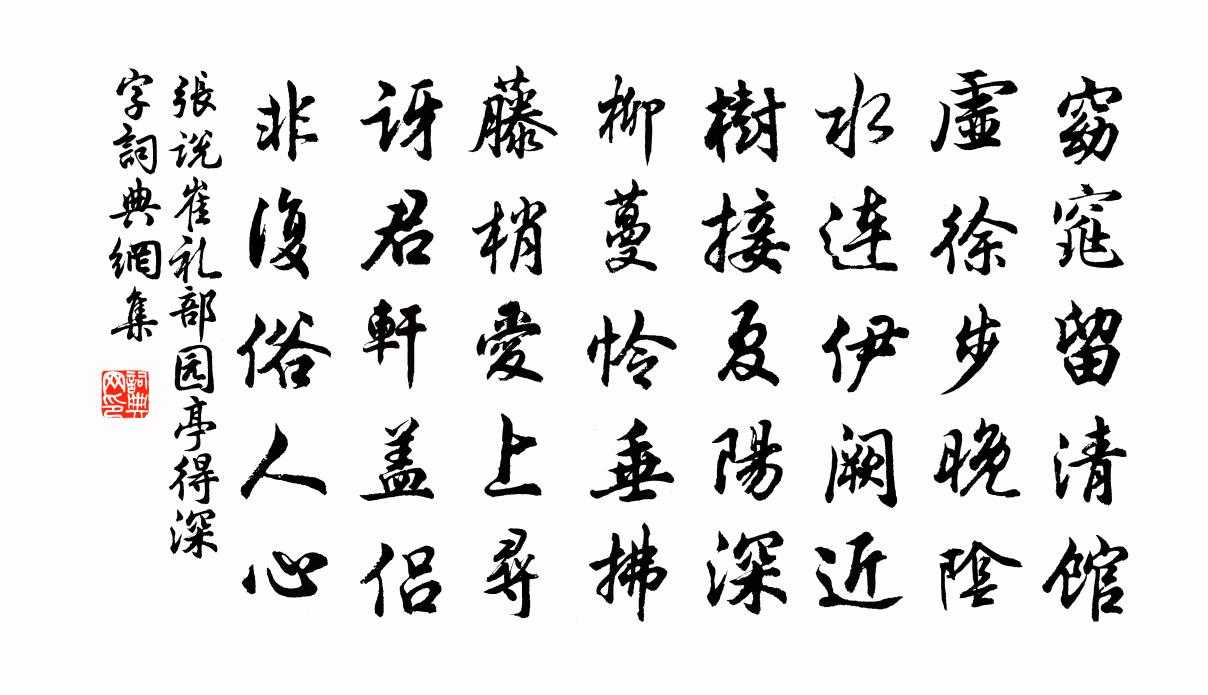 窈窕留清館
虛徐步晚陰
水連伊闕近
樹接夏陽深
柳蔓怜垂拂
藤梢愛上尋
訝君軒盖侶
非復俗人心
張说崔礼部园亭得深
字詞典網集
詞典
网印